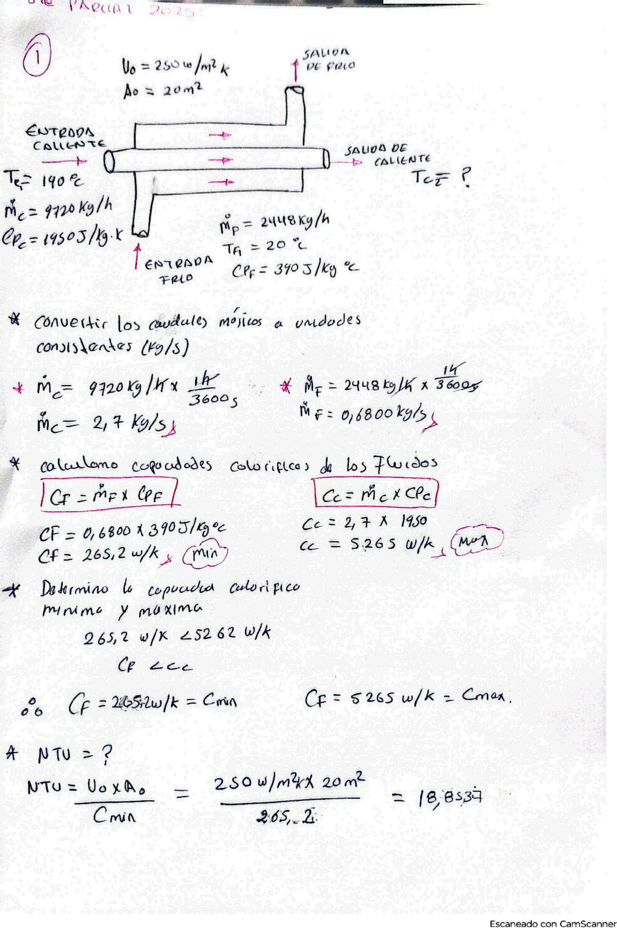 PARCIAL 2025
1
Uo = 250 w/m² k
Ao = 20 m²
SALIDA
DE FRIO
ENTRADA
CALIENTE
SALIDA DE
CALIENTE
= 190 °C
ṁc = 9720 Kg/h
CPc = 1950 J/Kg.K
= ?
ENTRADA
FRIO
= 2448 Kg/h
= 20 °c
CPF = 390 J/Kg °c
* convertir los caudales másicos a unidades
consistentes (Kg/s)
* ṁc = 9720 kg/h x 1h/3600s
ṁc = 2,7 Kg/s
* ṁF = 2448 kg/h x 1h/3600s
ṁF = 0,6800 kg/s
* calculamo capacidades calorificos de los Fluidos
CF = ṁF x CPF
CF = 0,6800 x 390 J/kg°c
CF = 265,2 w/k min
Cc = ṁc x CPc
Cc = 2,7 x 1950
cc = 5265 w/k Max
* Determino la capacidad calorifica
minima y maxima
265,2 w/K < 5262 w/k
CF < cc
∴ CF = 265,2 w/k = Cmin
CF = 5265 w/k = Cmax.
* NTU = ?
NTU = Uo x Ao / Cmin = 250 w/m²k x 20 m² / 265,2 = 18,8537
Escaneado con CamScanner